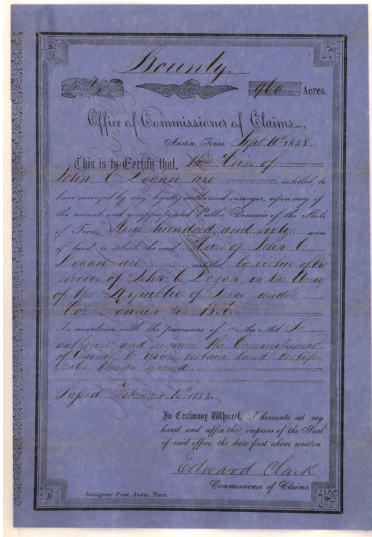 Bounty.
960 Acres.
Office of Commissioner of Claims,
Austin, Texas, Sept 10 1858
This is to Certify that, the Heirs of
John C Logan are entitled to
have surveyed by any legally authorized surveyor, upon any of
the vacant and unappropriated Public Domain of the State
of Texas Nine hundred and sixty acres
of land, to which the said Heirs of John C.
Logan are entitled by virtue of the
service of John C Logan, in the Army
of the Republic of Texas under
In accordance with the provisions of "An Act to
authorize and require the Commissioner
of Claims to issue certain land certifi-
cates therein named
1858.
In Testimony Whereof, I hereunto set my
hand and affix the impress of the Seal
of said office, the date first above written
Edward Clark
Commissioner of Claims.
Intelligencer Print, Austin, Texas.